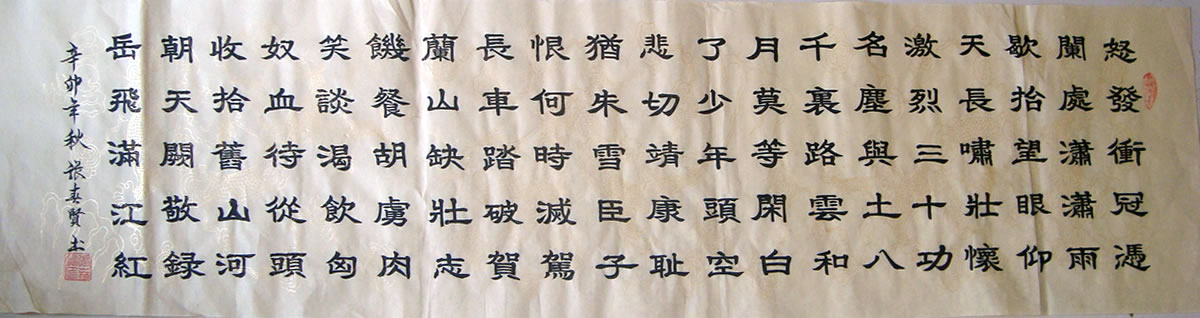 怒發衝冠憑
闌處瀟瀟雨
歇抬望眼仰
天長嘯壯懷
激烈三十功
名塵與土八
千裏路雲和
月莫等閑白
了少年頭空
悲切靖康耻
猶朱雪臣子
恨何時滅駕
長車踏破賀
蘭山缺壯志
饑餐胡虜肉
笑談渴飲匈
奴血待從頭
收拾舊山河
朝天闕敬録
岳飛滿江紅
辛卯年秋張春賢书